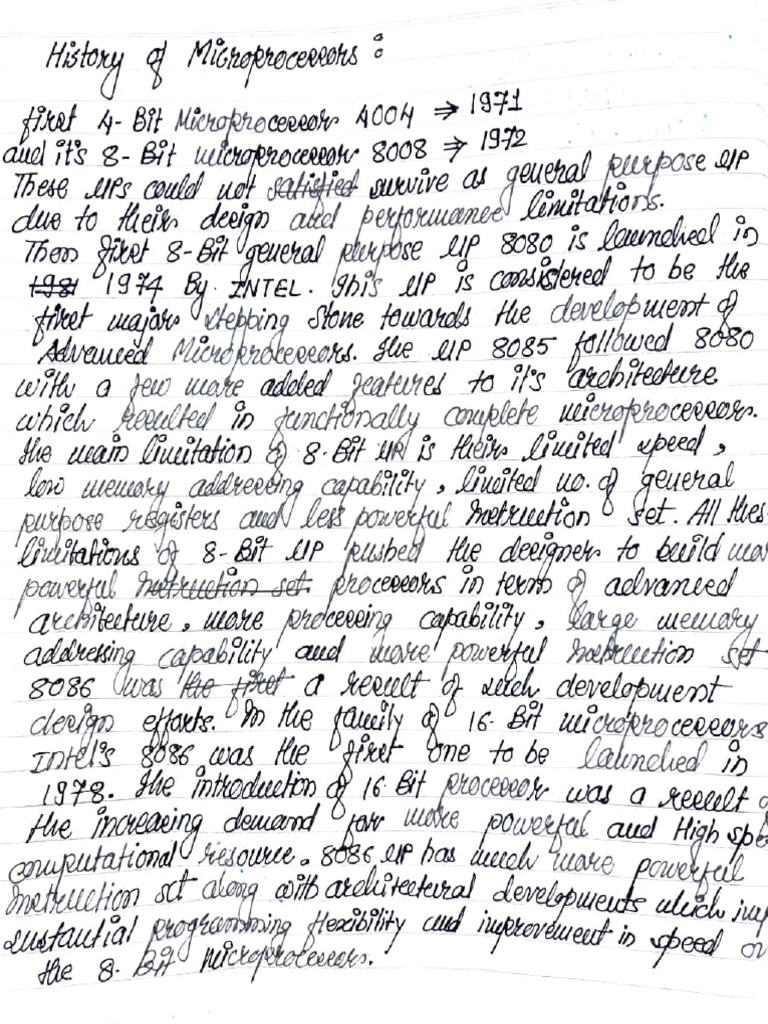 History of Microprocessors :
first 4-Bit Microprocessor 4004 ⇒ 1971
and it's 8-Bit microprocessor 8008 ⇒ 1972
These μPs could not satisfied survive as general purpose μP
due to their design and performance limitations.
Then first 8-Bit general purpose μP 8080 is launched in
1981 1974 By INTEL. This μP is consistered to be the
first major stepping stone towards the development of
Advanced Microprocessors. The μP 8085 followed 8080
with a few more added features to it's architecture
which resulted in functionally complete microprocessors.
The main limitation of 8-Bit μP is their limited speed,
low memory addressing capability, limited no. of general
purpose registers and less powerful Instruction set. All thes
limitations of 8-Bit μP pushed the designer to build mor
powerful Instruction set. processors in term of advanced
architecture, more processing capability, large memory
addressing capability and more powerful Instruction set
8086 was the first a result of such development
design efforts. In the family of 16-Bit microprocessors
Intel's 8086 was the first one to be launched in
1978. The introduction of 16 Bit processor was a result o
the increasing demand for more powerful and High spe
computational resource. 8086 μP has much more powerful
Instruction set along with architectural developments which imp
sustantial programming flexibility and improvement in speed ov
the 8-Bit microprocessors.